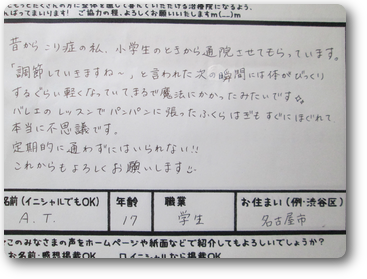 んばってまいります! ご協力の程、よろしくお願いいたしますm(__)m
昔からこり症の私、小学生のときから通院させてもらっています。
「調節していきますね〜」と言われた次の瞬間には体がびっくり
するぐらい軽くなっていてまるで魔法にかかったみたいです
バレエのレッスンでパンパンに張ったふくらはぎもすぐにほぐれて
本当に不思議です。
定期的に通わずにはいられない!!
これからもよろしくお願いします
名前(イニシャルでもOK) 年齢 職業 お住まい(例:渋谷区)
A.T. 17 学生 名古屋市
このみなさまの声をホームページや紙面などで紹介してもよろしいでしょうか?